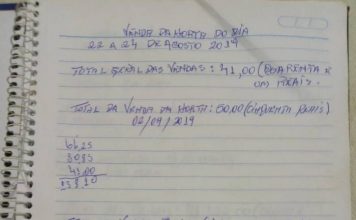 VENDA DA HORTA DO DIA
22 A 24 DE AGOSTO 2019
TOTAL GERAL DAS VENDAS: 41,00 (QUARENTA E
UM REAIS.
TOTAL DA VENDA DA HORTA: 50,00 (CINQUENTA REAIS)
02/09/2019
41,00